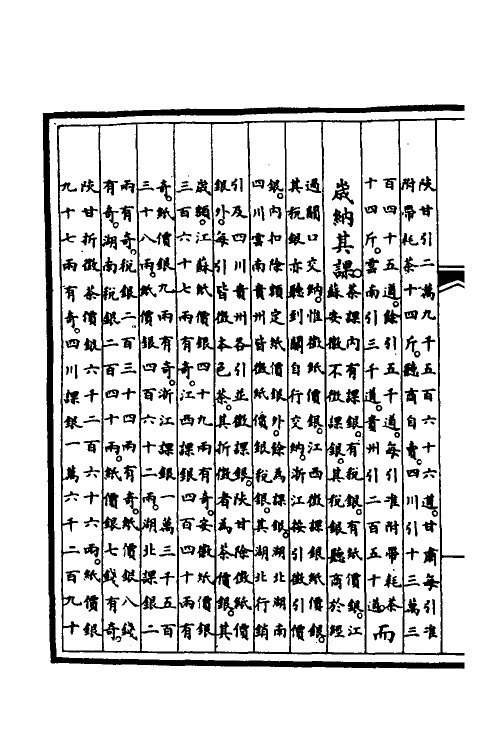 陜甘引二萬九千五百六十六道甘肅每引准
附帶耗茶十四斤聽商自賣四川引十三萬三
百四十五道餘引五千道每引准附帶耗茶
十四斤雲南引三千道貴州引二百五十道而
歲納其課茶課內有課銀有稅銀有紙價銀江
蘇安徽不徵課銀其稅銀聽商於經
過關口交納惟徵紙價銀江西徵課銀紙價銀
其稅銀亦聽到關自行交納浙江按引徵引價
銀內扣除額定紙價銀外餘為課銀湖北湖南
四川雲南貴州皆徵紙價銀稅銀其湖北行銷
引及四川貴州各引並徵課銀陜甘除徵紙價
銀外每引皆徵本色茶其折徵者為茶價銀其
歲額江蘇紙價銀四十九兩有奇安徽紙價銀
三百六十七兩有奇江西課銀四十兩有
奇紙價銀九兩有奇浙江課銀一萬三千五百
三十八兩紙價銀四百六十二兩湖北課銀二
兩有奇稅銀二百三十兩有奇紙價銀八錢
有奇湖南稅銀二百四十兩紙價銀七錢有奇
陜甘折徵茶價銀六千二百六十六兩紙價銀
九十七兩有奇四川課銀一萬六千二百九十